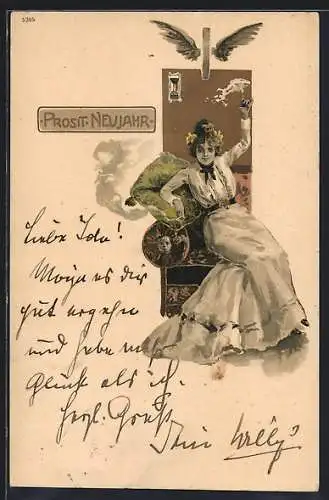 5365
PROSIT NEUJAHR
Liebe Ida!
Möge es dir
gut ergehn
und habe mehr
Glück als ich.
Herzl. Gruß
Dein Willy